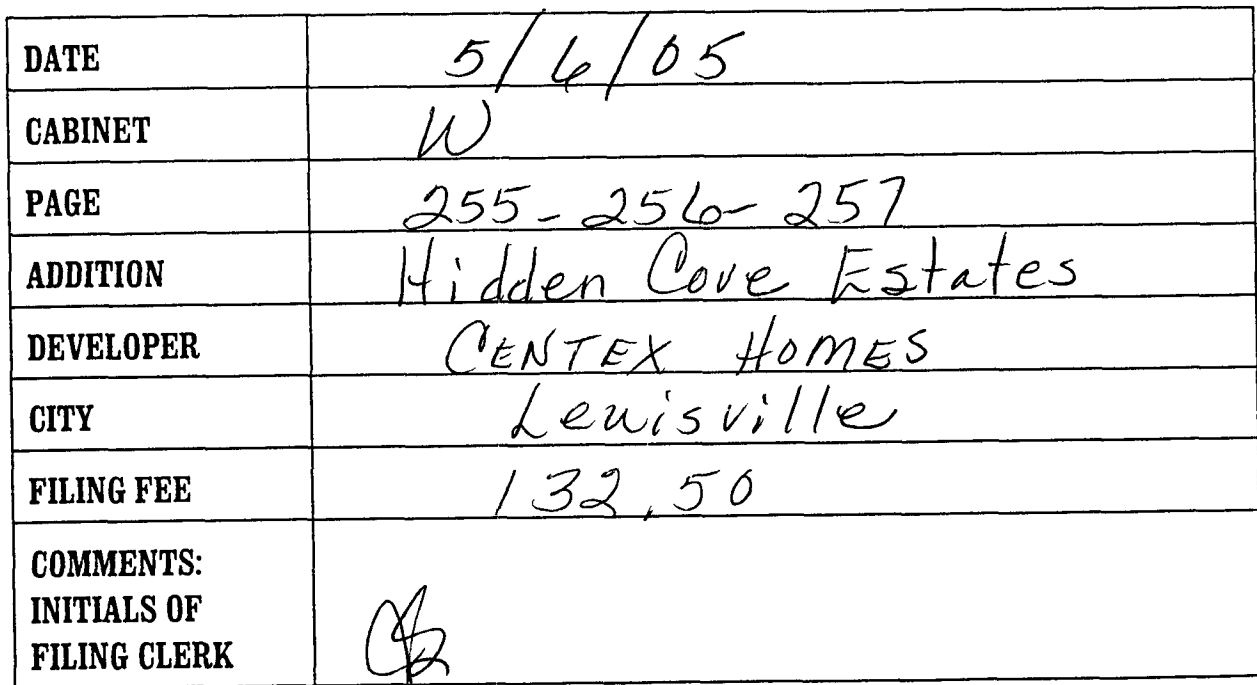 DATE 5/6/05
CABINET W
PAGE 255-256-257
ADDITION Hidden Cove Estates
DEVELOPER CENTEX HOMES
CITY Lewisville
FILING FEE 132.50
COMMENTS:
INITIALS OF
FILING CLERK